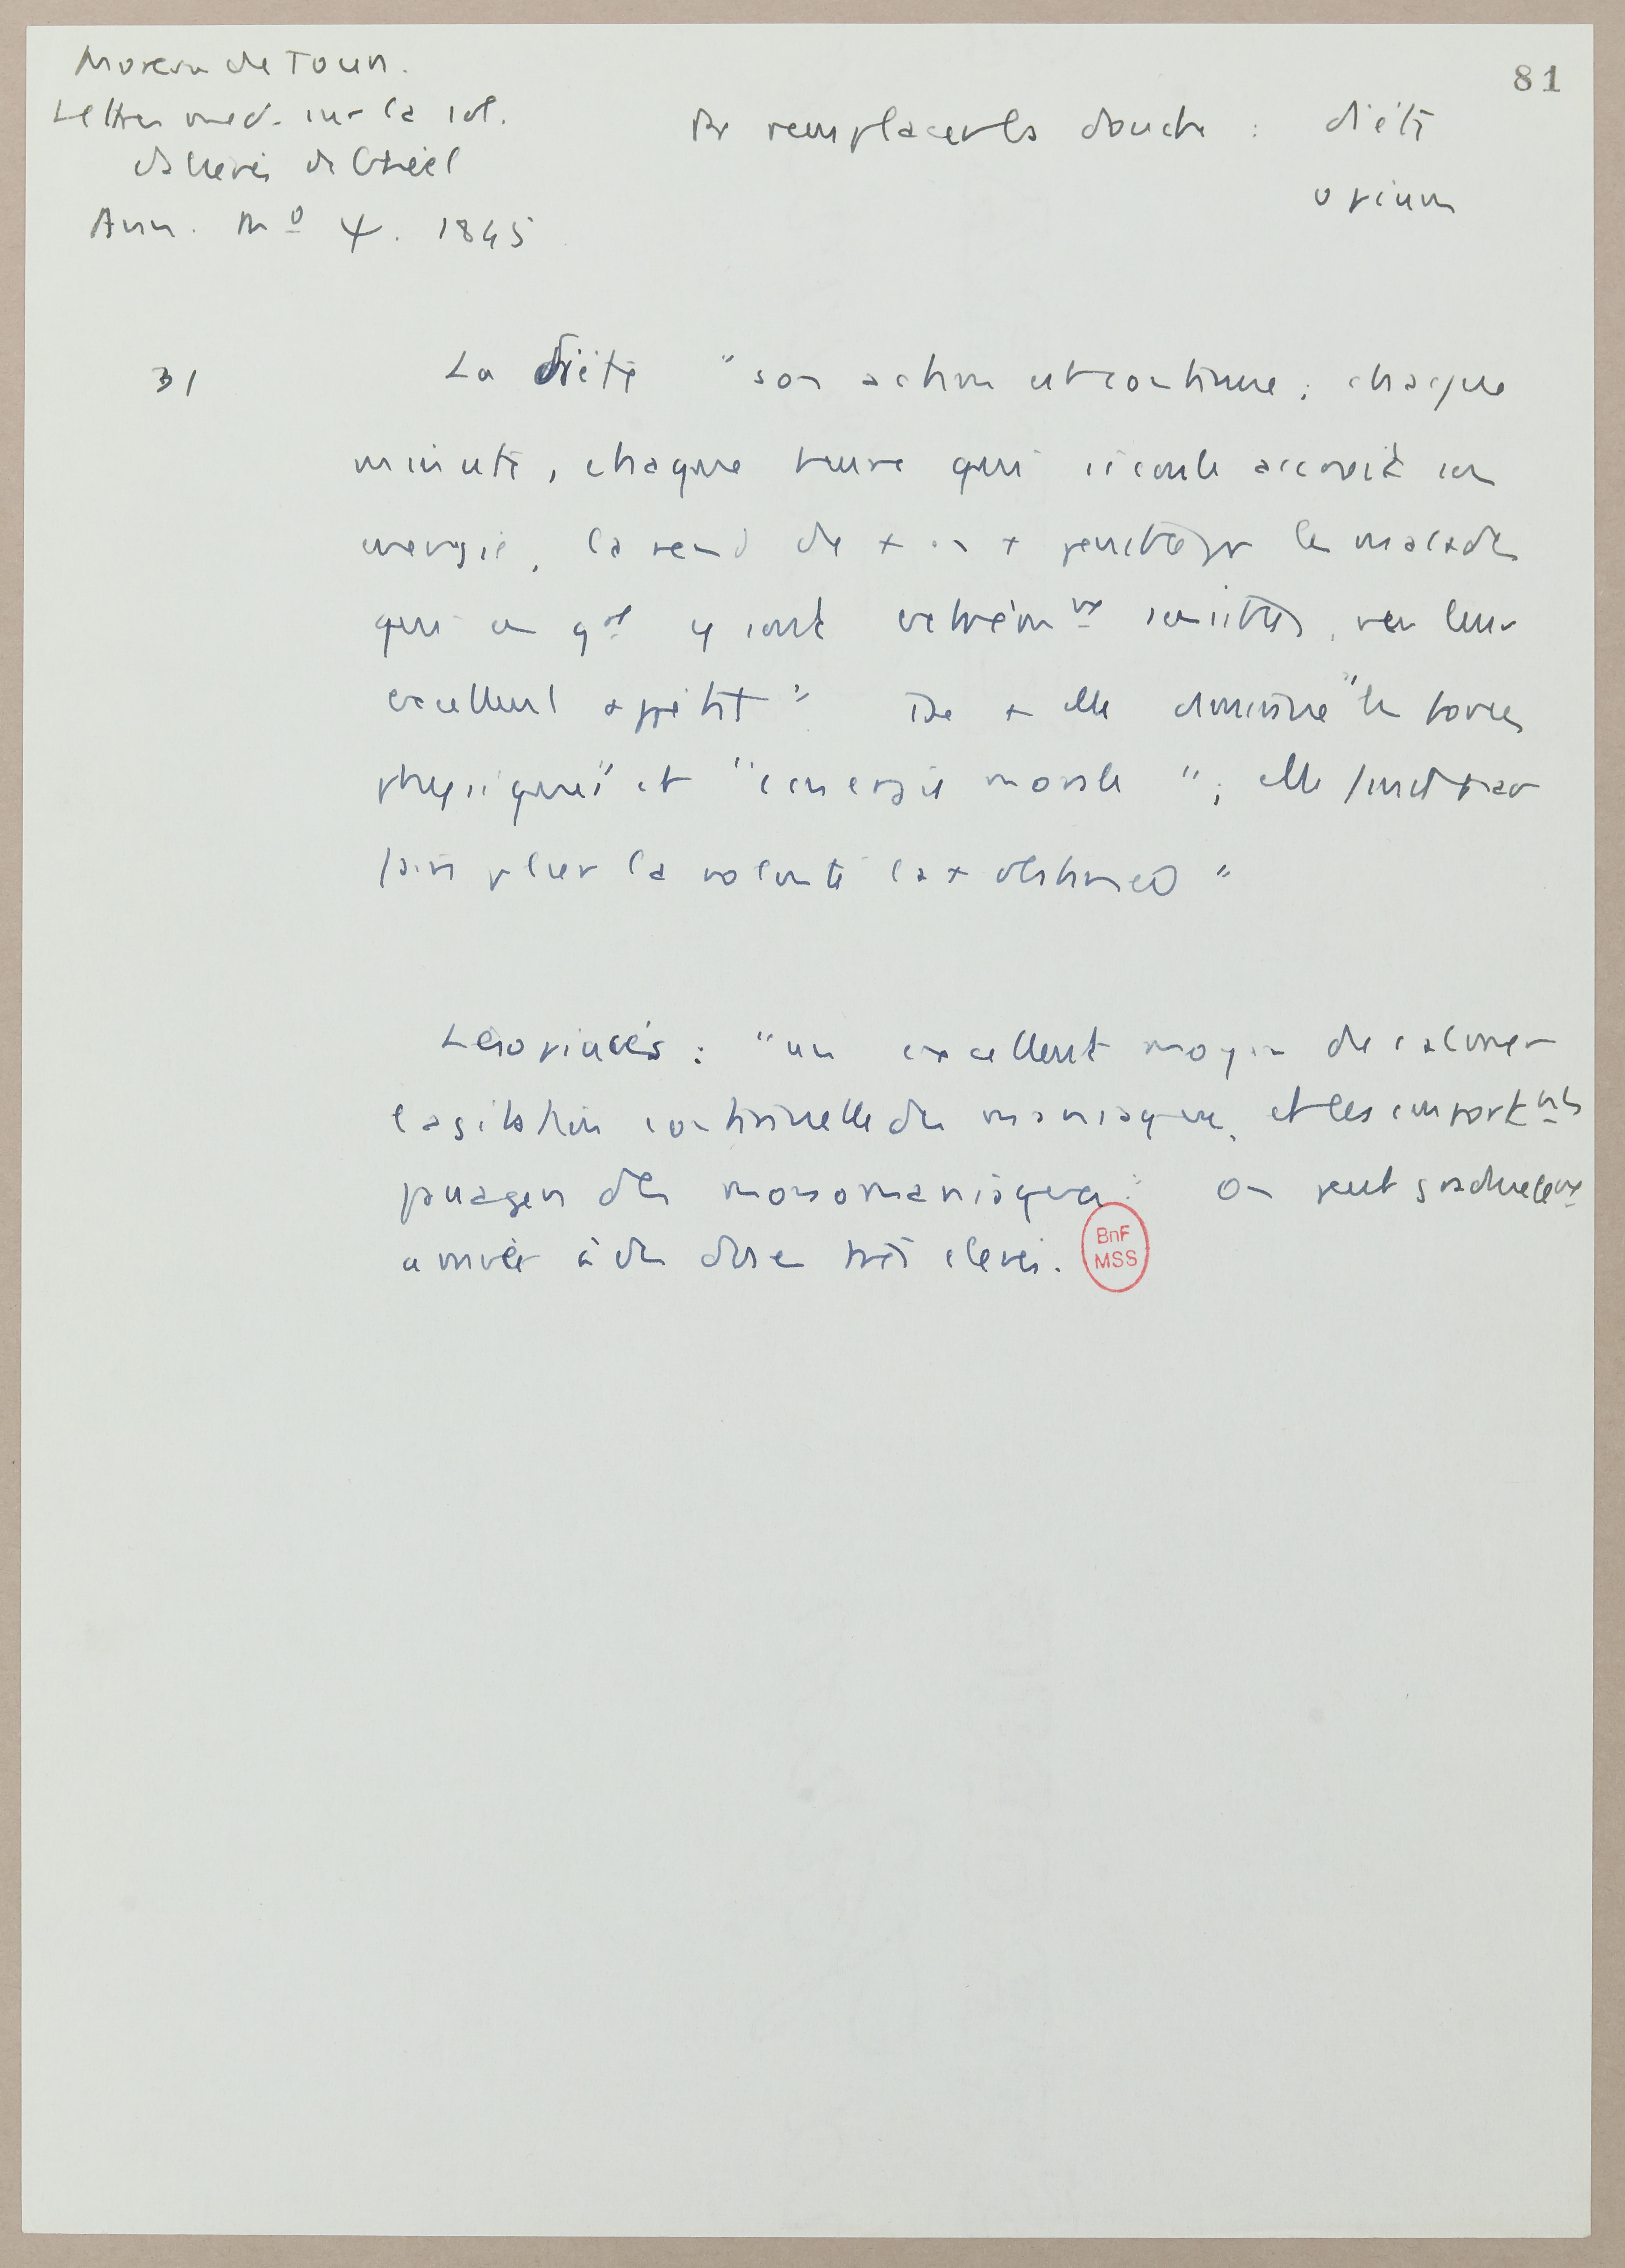 81
Moreau de Tours.
Lettres med. sur la col.
d'aliénés de Gheel
Ann. MΨ. 1845
Pr remplacer la douche : diète
opium
31
La diète "son action est continue ; chaque
minute, chaque heure qui s'écoule accroît son
energie, la rend de + en + pour les malades
qui en gal y sont extrêmt sensibles, vu leur
excellent appétit" De + elle diminue "les forces
physiques" et "l'énergie morale" ; elle finit par
faire plier la volonté la + obstinée"
Les opiacés : "un excellent moyen de calmer
l'agitation continuelle des maniaques, et les emportnts
passagers des monomaniaques" On peut graduellemt
arriver à des doses très élevées.
BnF
MSS